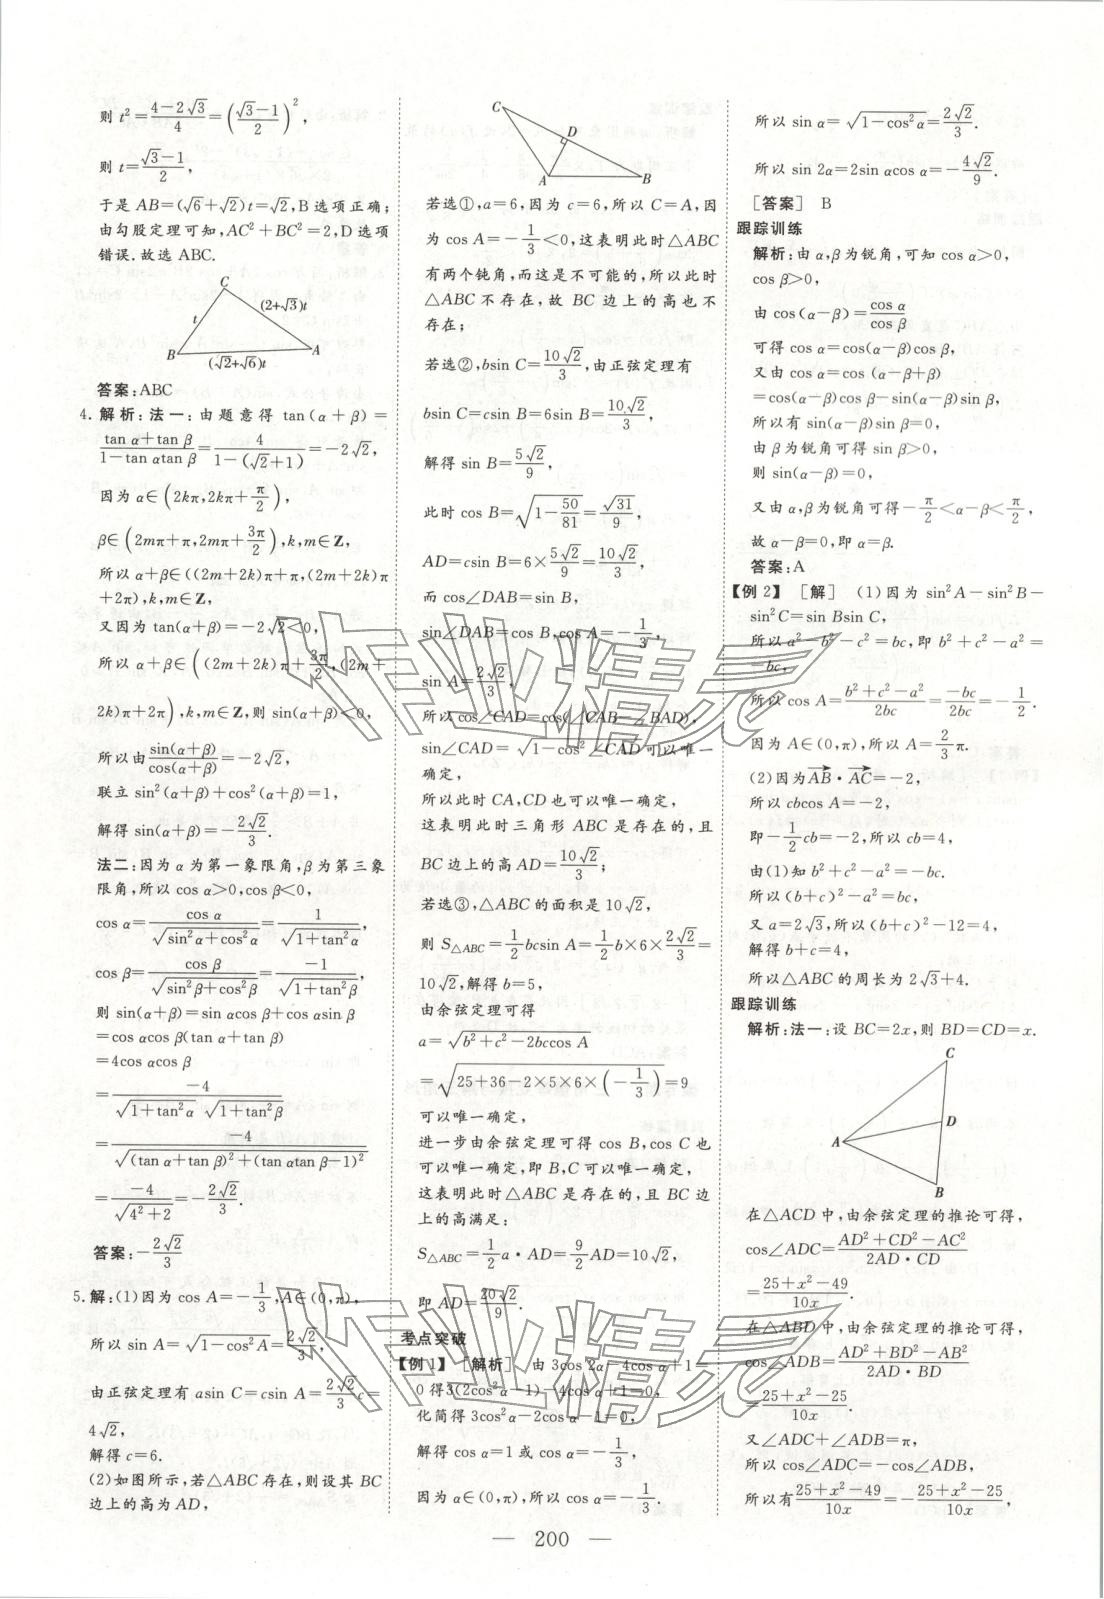 则 t²=(4-2√3)/4=((√3-1)/2)²,
则 t=(√3-1)/2,
于是 AB=(√6+√2)t=√2,B 选项正确;
由勾股定理可知,AC²+BC²=2,D 选项
错误.故选 ABC.
C
t
(2+√3)t
B
(√2+√6)t
A
答案:ABC
4. 解析:法一:由题意得 tan(α+β)=
(tan α+tan β)/(1-tan αtan β)=4/(1-(√2+1))=-2√2,
因为 α∈(2kπ,2kπ+π/2),
β∈(2mπ+π,2mπ+3π/2),k,m∈Z,
所以 α+β∈((2m+2k)π+π,(2m+2k)π
+2π),k,m∈Z,
又因为 tan(α+β)=-2√2<0,
所以 α+β∈((2m+2k)π+3π/2,(2m+
2k)π+2π),k,m∈Z,则 sin(α+β)<0,
所以由 sin(α+β)/cos(α+β)=-2√2,
联立 sin²(α+β)+cos²(α+β)=1,
解得 sin(α+β)=-2√2/3.
法二:因为 α 为第一象限角,β 为第三象
限角,所以 cos α>0,cos β<0,
cos α=cos α/√(sin²α+cos²α)=1/√(1+tan²α),
cos β=cos β/√(sin²β+cos²β)=-1/√(1+tan²β),
则 sin(α+β)=sin αcos β+cos αsin β
=cos αcos β(tan α+tan β)
=4cos αcos β
=-4/(√(1+tan²α)√(1+tan²β))
=-4/√((tan α+tan β)²+(tan αtan β-1)²)
=-4/√(4²+2)=-2√2/3.
答案:-2√2/3
5. 解:(1)因为 cos A=-1/3,A∈(0,π),
所以 sin A=√(1-cos²A)=2√2/3,
由正弦定理有 asin C=csin A=(2√2/3)c=
4√2,
解得 c=6.
(2)如图所示,若△ABC 存在,则设其 BC
边上的高为 AD,
C
D
A
B
若选①,a=6,因为 c=6,所以 C=A,因
为 cos A=-1/3<0,这表明此时△ABC
有两个钝角,而这是不可能的,所以此时
△ABC 不存在,故 BC 边上的高也不
存在;
若选②,bsin C=10√2/3,由正弦定理有
bsin C=csin B=6sin B=10√2/3,
解得 sin B=5√2/9,
此时 cos B=√(1-50/81)=√31/9,
AD=csin B=6×5√2/9=10√2/3,
而 cos∠DAB=sin B,
sin∠DAB=cos B,cos A=-1/3,
sin A=2√2/3,
所以 cos∠CAD=cos(∠CAB-∠BAD),
sin∠CAD=√(1-cos²∠CAD)可以唯一
确定,
所以此时 CA,CD 也可以唯一确定,
这表明此时三角形 ABC 是存在的,且
BC 边上的高 AD=10√2/3;
若选③,△ABC 的面积是 10√2,
则 S△ABC=1/2bcsin A=1/2b×6×2√2/3=
10√2,解得 b=5,
由余弦定理可得
a=√(b²+c²-2bccos A)
=√(25+36-2×5×6×(-1/3))=9
可以唯一确定,
进一步由余弦定理可得 cos B,cos C 也
可以唯一确定,即 B,C 可以唯一确定,
这表明此时△ABC 是存在的,且 BC 边
上的高满足:
S△ABC=1/2a·AD=9/2AD=10√2,
即 AD=20√2/9.
考点突破
【例 1】 [解析] 由 3cos 2α-4cos α+1=
0 得 3(2cos²α-1)-4cos α+1=0,
化简得 3cos²α-2cos α-1=0,
解得 cos α=1 或 cos α=-1/3,
因为 α∈(0,π),所以 cos α=-1/3.
所以 sin α=√(1-cos²α)=2√2/3.
所以 sin 2α=2sin αcos α=-4√2/9.
[答案] B
跟踪训练
解析:由 α,β 为锐角,可知 cos α>0,
cos β>0,
由 cos(α-β)=cos α/cos β
可得 cos α=cos(α-β)cos β,
又由 cos α=cos (α-β+β)
=cos(α-β)cos β-sin(α-β)sin β,
所以有 sin(α-β)sin β=0,
由 β 为锐角可得 sin β>0,
则 sin(α-β)=0,
又由 α,β 为锐角可得-π/2<α-β<π/2,
故 α-β=0,即 α=β.
答案:A
【例 2】 [解] (1)因为 sin²A-sin²B-
sin²C=sin Bsin C,
所以 a²-b²-c²=bc,即 b²+c²-a²=
-bc,
所以 cos A=(b²+c²-a²)/2bc=-bc/2bc=-1/2.
因为 A∈(0,π),所以 A=2/3π.
(2)因为AB·AC=-2,
所以 cbcos A=-2,
即-1/2cb=-2,所以 cb=4,
由(1)知 b²+c²-a²=-bc.
所以(b+c)²-a²=bc,
又 a=2√3,所以(b+c)²-12=4,
解得 b+c=4,
所以△ABC 的周长为 2√3+4.
跟踪训练
解析:法一:设 BC=2x,则 BD=CD=x.
C
A
D
B
在△ACD 中,由余弦定理的推论可得,
cos∠ADC=(AD²+CD²-AC²)/(2AD·CD)
=(25+x²-49)/10x.
在△ABD 中,由余弦定理的推论可得,
cos∠ADB=(AD²+BD²-AB²)/(2AD·BD)
=(25+x²-25)/10x.
又∠ADC+∠ADB=π,
所以 cos∠ADC=-cos∠ADB,
所以有(25+x²-49)/10x=-(25+x²-25)/10x,
— 200 —
作业精灵
作业精灵